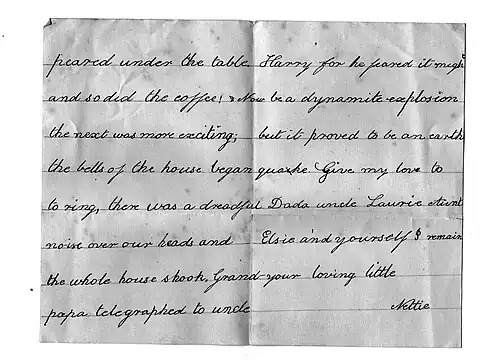 peared under the table
and so did the coffee! Now
the next was more exciting;
the bells of the house began
to ring, there was a dreadful
noise over our heads and
the whole house shook. Grand
papa telegraphed to uncle
Harry for he feared it might
be a dynamite explosion
but it proved to be an earth
quake. Give my love to
Dada uncle Laurie Aunt
Elsie and yourself I remain
your loving little
Nettie